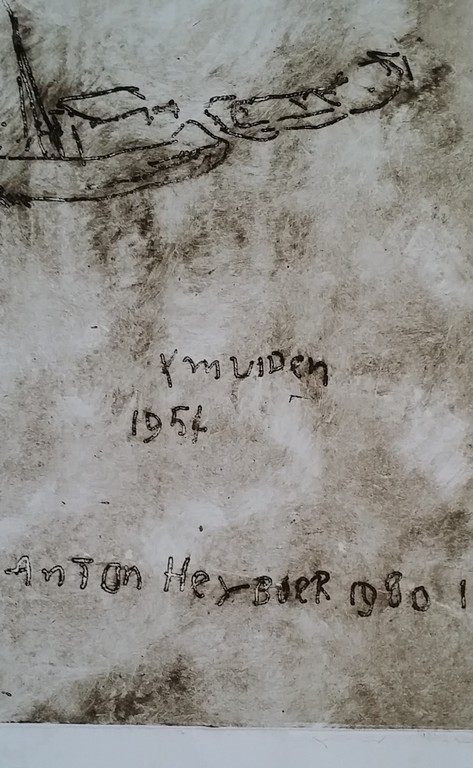 YmuiDen
1954
AnTOn HeyBOeR 1980 1